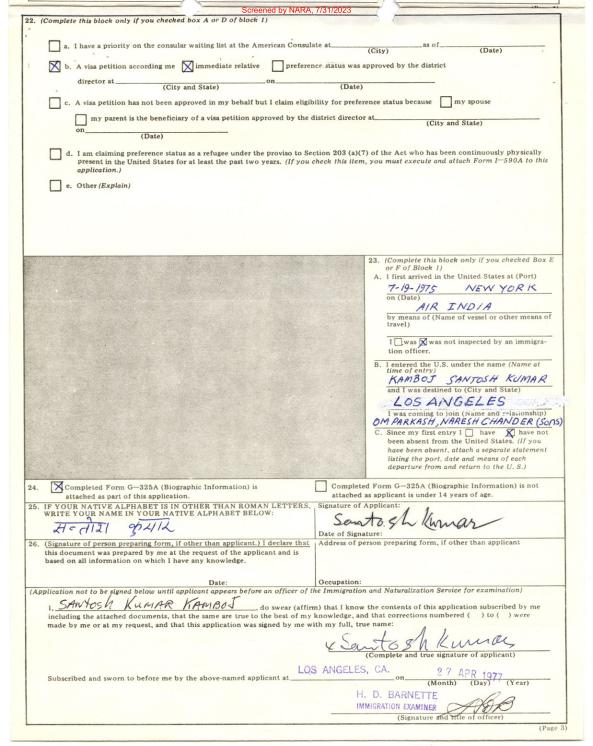 Screened by NARA, 7/31/2023
22. (Complete this block only if you checked box A or D of block 1)
a. I have a priority on the consular waiting list at the American Consulate at as of
(City) (Date)
b. A visa petition according me immediate relative preference status was approved by the district
director at on
(City and State) (Date)
c. A visa petition has not been approved in my behalf but I claim eligibility for preference status because my spouse
my parent is the beneficiary of a visa petition approved by the district director at
(City and State)
on
(Date)
d. I am claiming preference status as a refugee under the proviso to Section 203 (a)(7) of the Act who has been continuously physically
present in the United States for at least the past two years. (If you check this item, you must execute and attach Form I-590A to this
application.)
e. Other (Explain)
23. (Complete this block only if you checked Box E
or F of Block 1)
A. I first arrived in the United States at (Port)
7-19-1975 NEW YORK
on (Date)
AIR INDIA
by means of (Name of vessel or other means of
travel)
I was X was not inspected by an immigra-
tion officer.
B. I entered the U.S. under the name (Name at
time of entry)
KAMBOJ SANTOSH KUMAR
and I was destined to (City and State)
LOS ANGELES
I was coming to join (Name and relationship)
OM PARKASH, NARESH CHANDER (Sons)
C. Since my first entry I have X have not
been absent from the United States. (If you
have been absent, attach a separate statement
listing the port, date and means of each
departure from and return to the U. S.)
24. X Completed Form G-325A (Biographic Information) is
attached as part of this application.
Completed Form G-325A (Biographic Information) is not
attached as applicant is under 14 years of age.
25. IF YOUR NATIVE ALPHABET IS IN OTHER THAN ROMAN LETTERS,
WRITE YOUR NAME IN YOUR NATIVE ALPHABET BELOW:
सन्तोश कुमार
Signature of Applicant:
Santosh Kumar
Date of Signature:
26. (Signature of person preparing form, if other than applicant.) I declare that
this document was prepared by me at the request of the applicant and is
based on all information on which I have any knowledge.
Date:
Address of person preparing form, if other than applicant
Occupation:
(Application not to be signed below until applicant appears before an officer of the Immigration and Naturalization Service for examination)
I, SANTOSH KUMAR KAMBOJ do swear (affirm) that I know the contents of this application subscribed by me
including the attached documents, that the same are true to the best of my knowledge, and that corrections numbered ( ) to ( ) were
made by me or at my request, and that this application was signed by me with my full, true name:
x Santosh Kumar
(Complete and true signature of applicant)
Subscribed and sworn to before me by the above-named applicant at LOS ANGELES, CA. on 27 APR 1977
(Month) (Day) (Year)
H. D. BARNETTE
IMMIGRATION EXAMINER
(Signature and title of officer)
(Page 3)